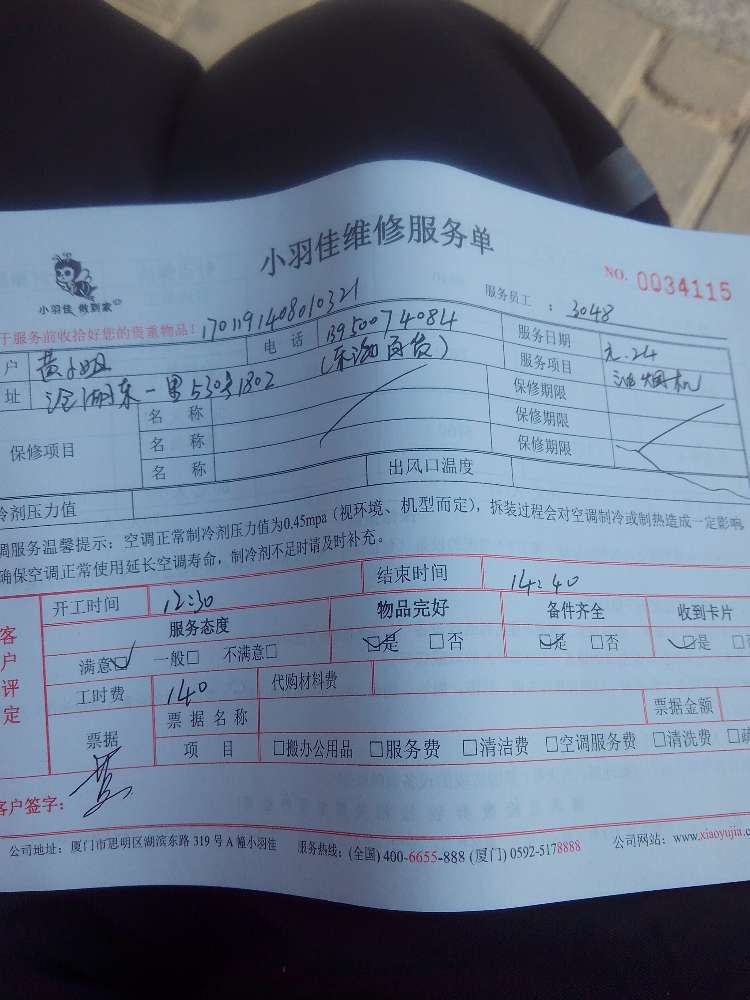 小羽佳维修服务单
小羽佳 做到家
NO. 0034115
服务员工：3048
于服务前收拾好您的贵重物品！1701191408010321
户 黄小姐 电话 13950074084 服务日期 元.24
址 沧湖东一里530号1802 服务项目 油烟机
保修项目 名称 保修期限
名称 保修期限
名称 保修期限
冷剂压力值 出风口温度
调服务温馨提示：空调正常制冷剂压力值为0.45mpa（视环境、机型而定），拆装过程会对空调制冷或制热造成一定影响，
确保空调正常使用延长空调寿命，制冷剂不足时请及时补充。
客户评定
开工时间 12:30 结束时间 14:40
服务态度 物品完好 备件齐全 收到卡片
满意☑ 一般□ 不满意□ ☑是 □否 ☑是 □否 ☑是 □否
工时费 140 代购材料费
票据 票据名称 票据金额
项目 □搬办公用品 □服务费 □清洁费 □空调服务费 □清洗费 □疏
客户签字：黄
公司地址：厦门市思明区湖滨东路319号A幢小羽佳 服务热线：(全国) 400-6655-888 (厦门) 0592-5178888 公司网站：www.xiaoyujia.c